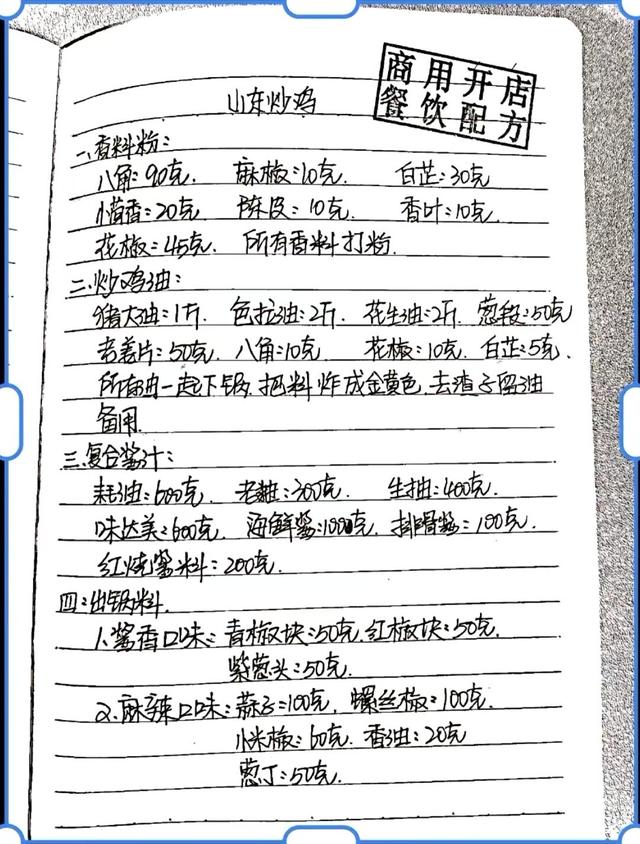 商用开店
餐饮配方
山东炒鸡
一、香料粉：
八角：90克. 麻椒：10克. 白芷：30克
小茴香：20克. 陈皮：10克. 香叶：10克.
花椒：45克. 所有香料打粉.
二.炒鸡油：
猪大油：1斤 色拉油：2斤. 花生油：2斤. 葱段：50克
老姜片：50克. 八角：10克 花椒：10克. 白芷：5克.
所有油一起下锅.把料炸成金黄色.去渣子留油
备用.
三.复合酱汁：
耗油：600克. 老抽：300克. 生抽：400克.
味达美：600克. 海鲜酱：1000克. 排骨酱：100克.
红烧酱料：200克.
四：出锅料.
1.酱香口味：青椒块：50克.红椒块：50克.
紫葱头：50克.
2.麻辣口味：蒜子：100克. 螺丝椒：100克.
小米椒：60克. 香油：20克
葱丁：50克.